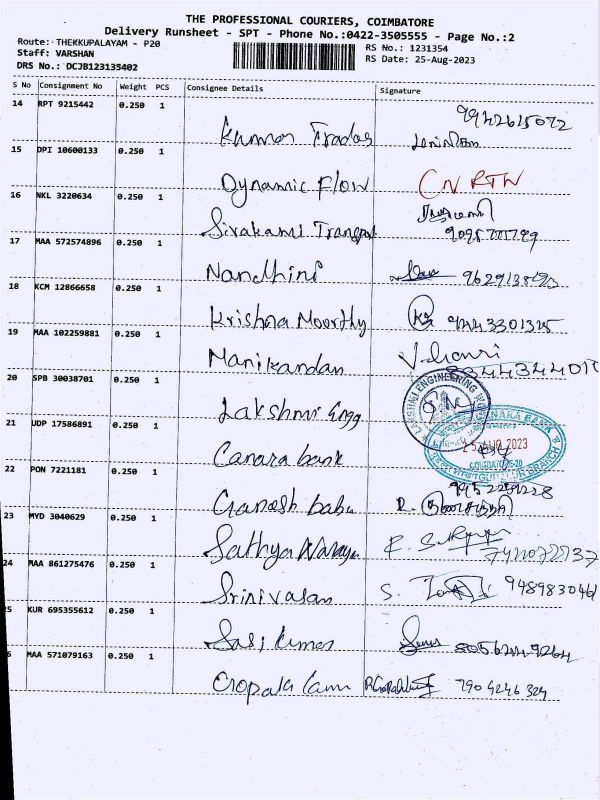 THE PROFESSIONAL COURIERS, COIMBATORE
Delivery Runsheet - SPT - Phone No.:0422-3505555 - Page No.:2
Route: THEKKUPALAYAM - P20
RS No.: 1231354
Staff: VARSHAN
RS Date: 25-Aug-2023
DRS No.: DCJB123135402
S No Consignment No Weight PCS Consignee Details Signature
14 RPT 9215442 0.250 1
Kumar Trades 9942615072
15 DPI 10600133 0.250 1
Dynamic Flow CN RTN
16 NKL 3220634 0.250 1
Sivakami Transport
17 MAA 572574896 0.250 1
Nandhini
18 KCM 12866658 0.250 1
Krishna Moorthy
19 MAA 102259881 0.250 1
Manikandan
20 SPB 30038701 0.250 1
Lakshmi Engg
21 UDP 17586891 0.250 1
Canara bank 25 AUG 2023
22 PON 7221181 0.250 1
Ganesh babu
23 MYD 3040629 0.250 1
Sathya Narayan
24 MAA 861275476 0.250 1
Srinivasan
25 KUR 695355612 0.250 1
Sasi kumar
6 MAA 571079163 0.250 1
7904246324